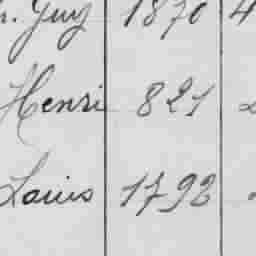 Guy 1870 4
Henri 821
Louis 1792